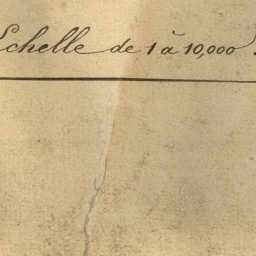 Echelle de 1 à 10,000